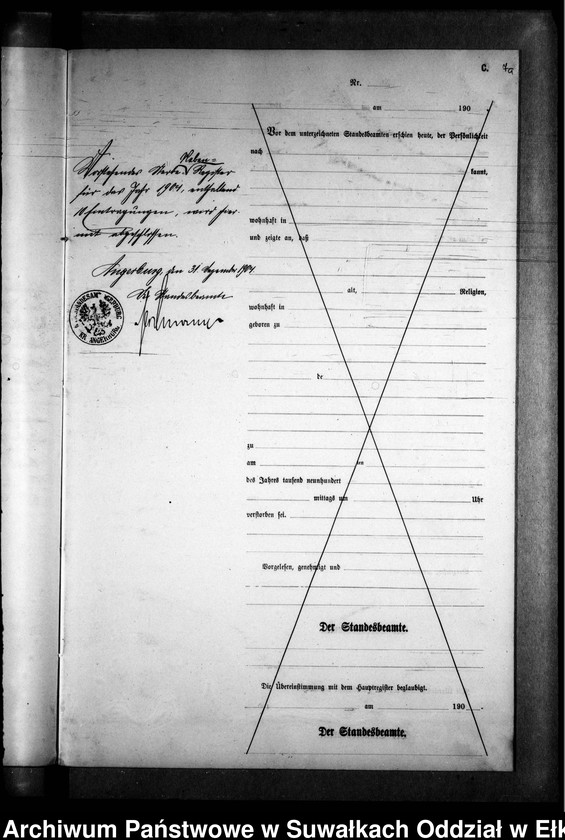 C. 7a
Nr.
am 190 .
Vor dem unterzeichneten Standesbeamten erschien heute, der Persönlichkeit
nach
kannt,
wohnhaft in
und zeigte an, daß
alt, Religion,
wohnhaft in
geboren zu
de
zu
am ten
des Jahres tausend neunhundert
mittags um Uhr
verstorben sei.
Vorgelesen, genehmigt und
Der Standesbeamte.
Die Übereinstimmung mit dem Hauptregister beglaubigt.
am 190 .
Der Standesbeamte.
Neben=
Vorstehendes Sterbe Register
für das Jahr 1904, enthaltend
Eintragungen, wird hier
mit abgeschlossen.
Angerburg, den 31 Dezember 1904
Der Standesbeamte
STANDESAMT
KR. ANGERBURG
Archiwum Państwowe w Suwałkach Oddział w Ełk